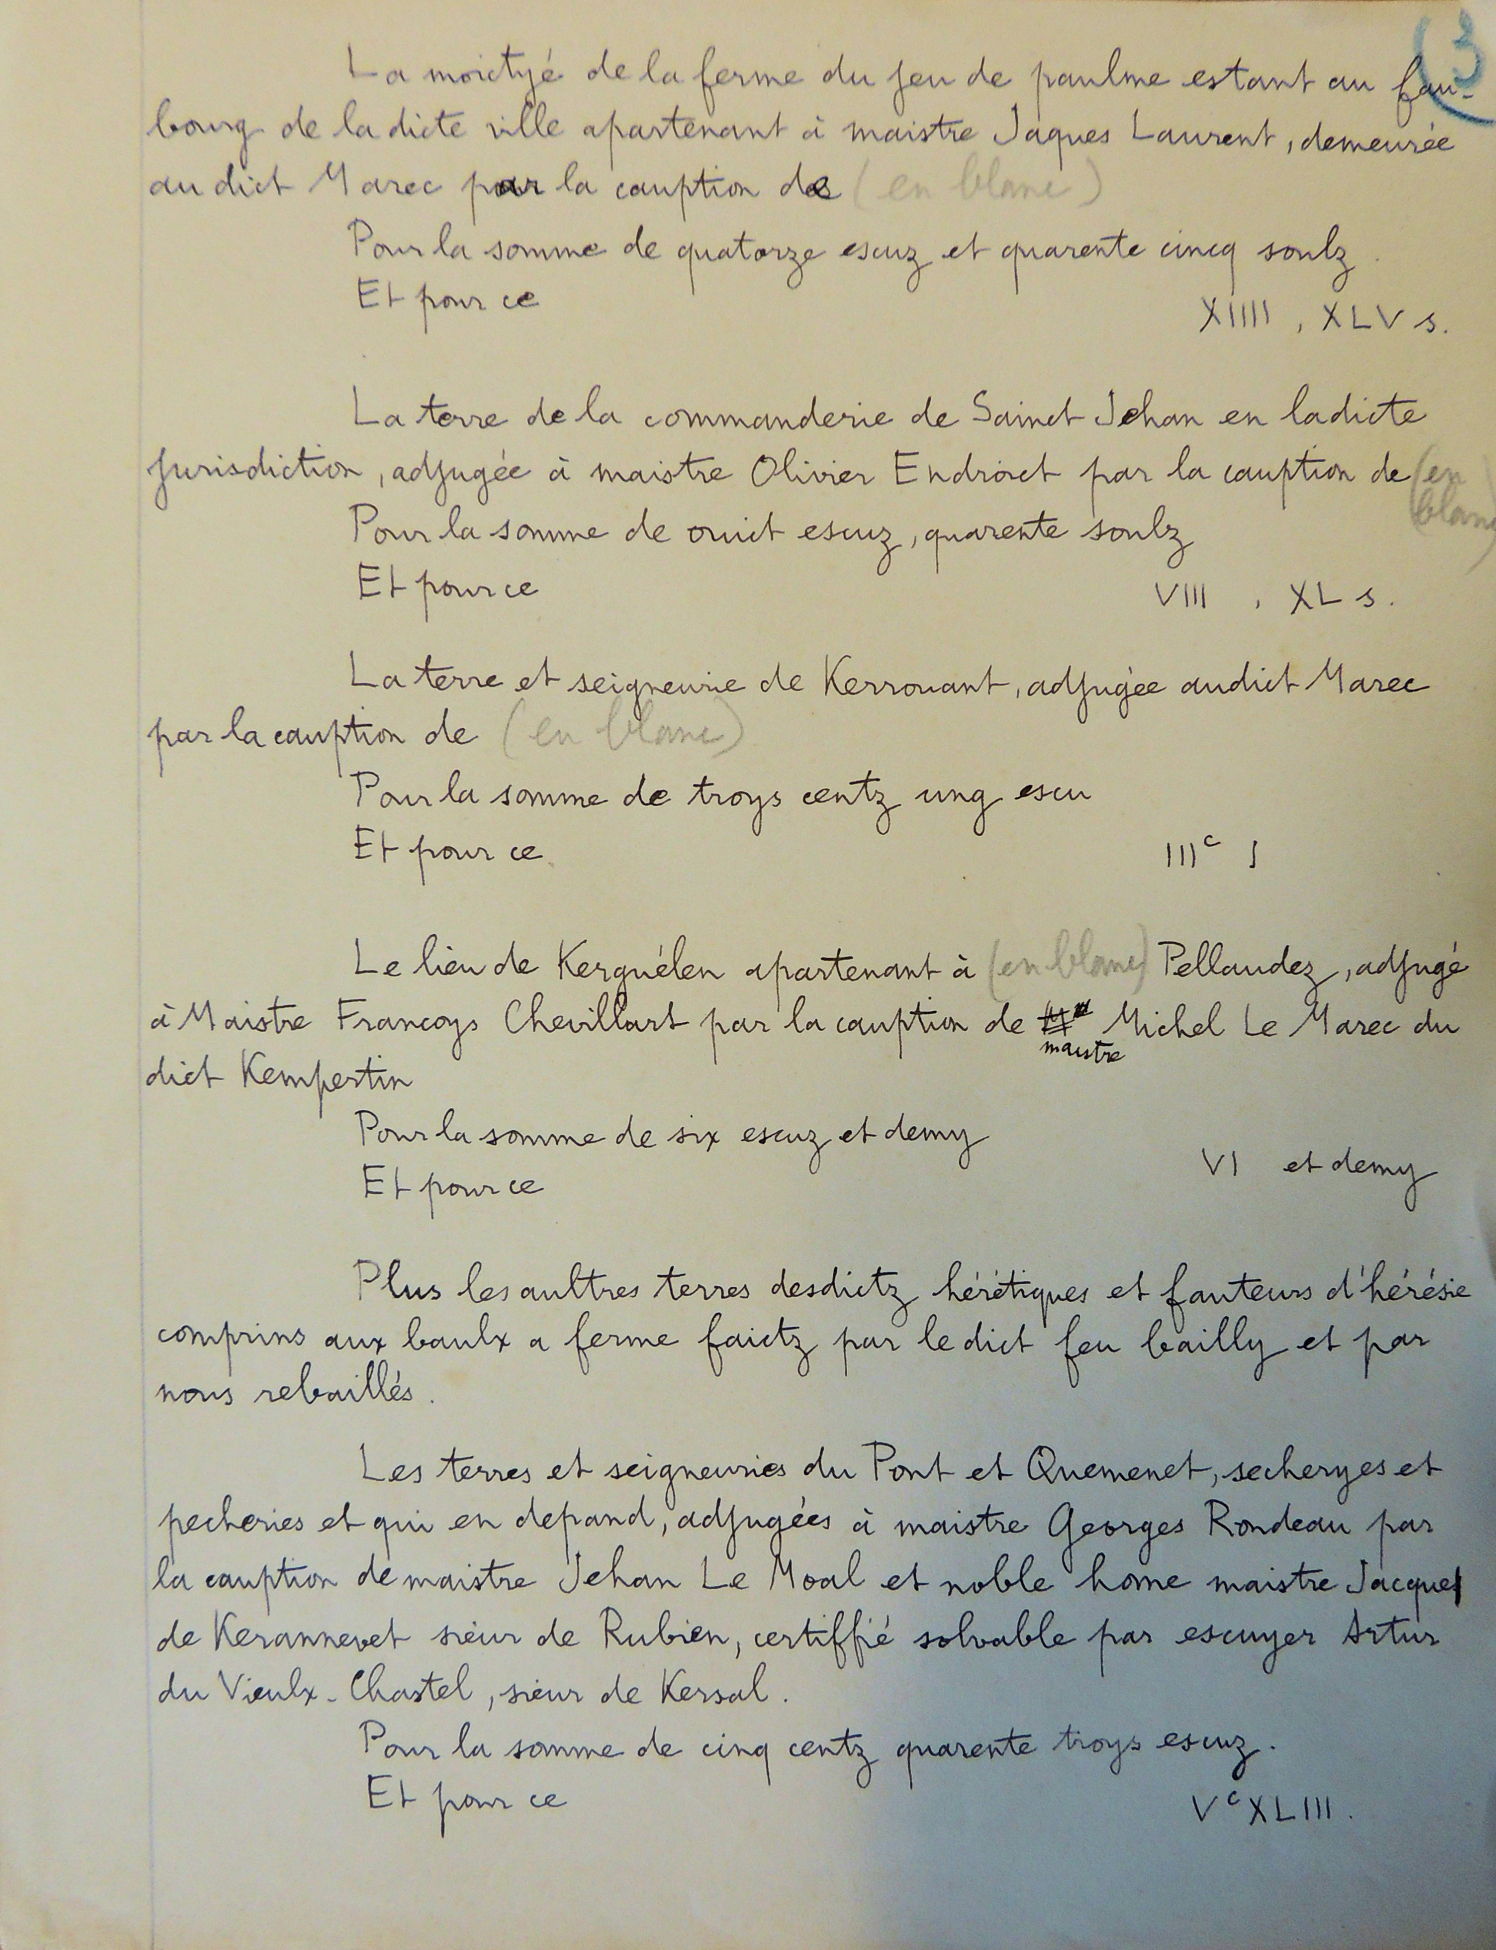 (3
La moictyé de la ferme du jeu de paulme estant au fau-
bourg de ladicte ville apartenant à maistre Jaques Laurent, demeurée
audict Marec par la cauption de (en blanc)
Pour la somme de quatorze escuz et quarente cincq soulz.
Et pour ce
XIIII , XLV s.
La terre de la commanderie de Sainct Jehan en ladicte
jurisdiction, adjugée à maistre Olivier Endroict par la cauption de (en
blanc)
Pour la somme de ouict escuz, quarente soulz
Et pour ce
VIII , XL s.
La terre et seigneurie de Kerrouant, adjugée audict Marec
par la cauption de (en blanc)
Pour la somme de troys centz ung escu
Et pour ce
IIIc I
Le lieu de Kerguélen apartenant à (en blanc) Pellaudez, adjugé
à Maistre Francoys Chevillart par la cauption de Michel Le Marec du
maistre
dict Kempertin
Pour la somme de six escuz et demy
Et pour ce
VI et demy
Plus les aultres terres desdictz hérétiques et fauteurs d'hérésie
comprins aux baulx a ferme faictz par le dict feu bailly et par
nous rebaillés.
Les terres et seigneuries du Pont et Quemenet, secheryes et
pecheries et qui en depand, adjugées à maistre Georges Rondeau par
la cauption de maistre Jehan Le Moal et noble home maistre Jacques
de Kerannevet sieur de Rubien, certiffié solvable par escuyer Artur
du Vieulx-Chastel, sieur de Kersal.
Pour la somme de cinq centz quarente troys escuz.
Et pour ce
Vc XLIII.